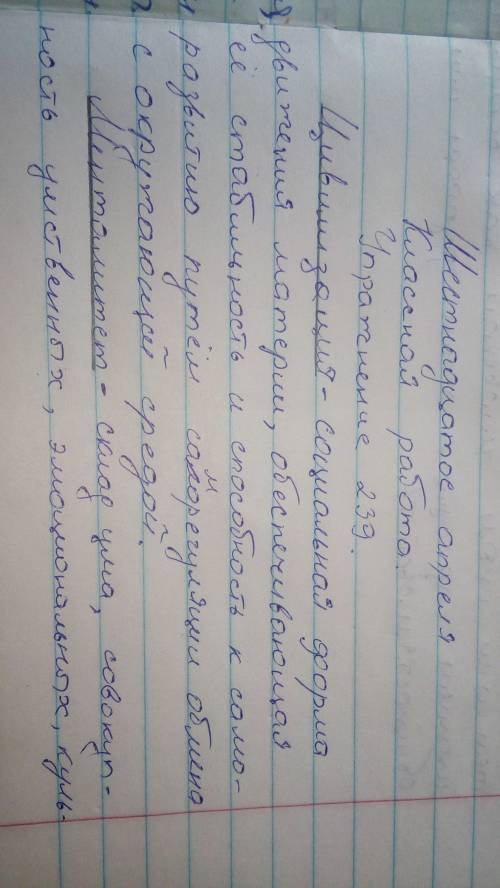 Шестнадцатое апреля
Классная работа.
Упражнение 239.
Цивилизация - социальная форма
движения материи, обеспечивающая
её стабильность и способность к само-
развитию путём саморегуляции обмена
с окружающей средой.
Менталитет - склад ума, совокуп-
ность умственных, эмоциональных, куль-